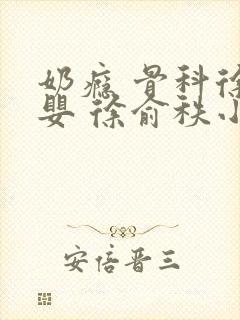 奶瘾 骨科徐
婴 徐俞秩小
安倍晋三